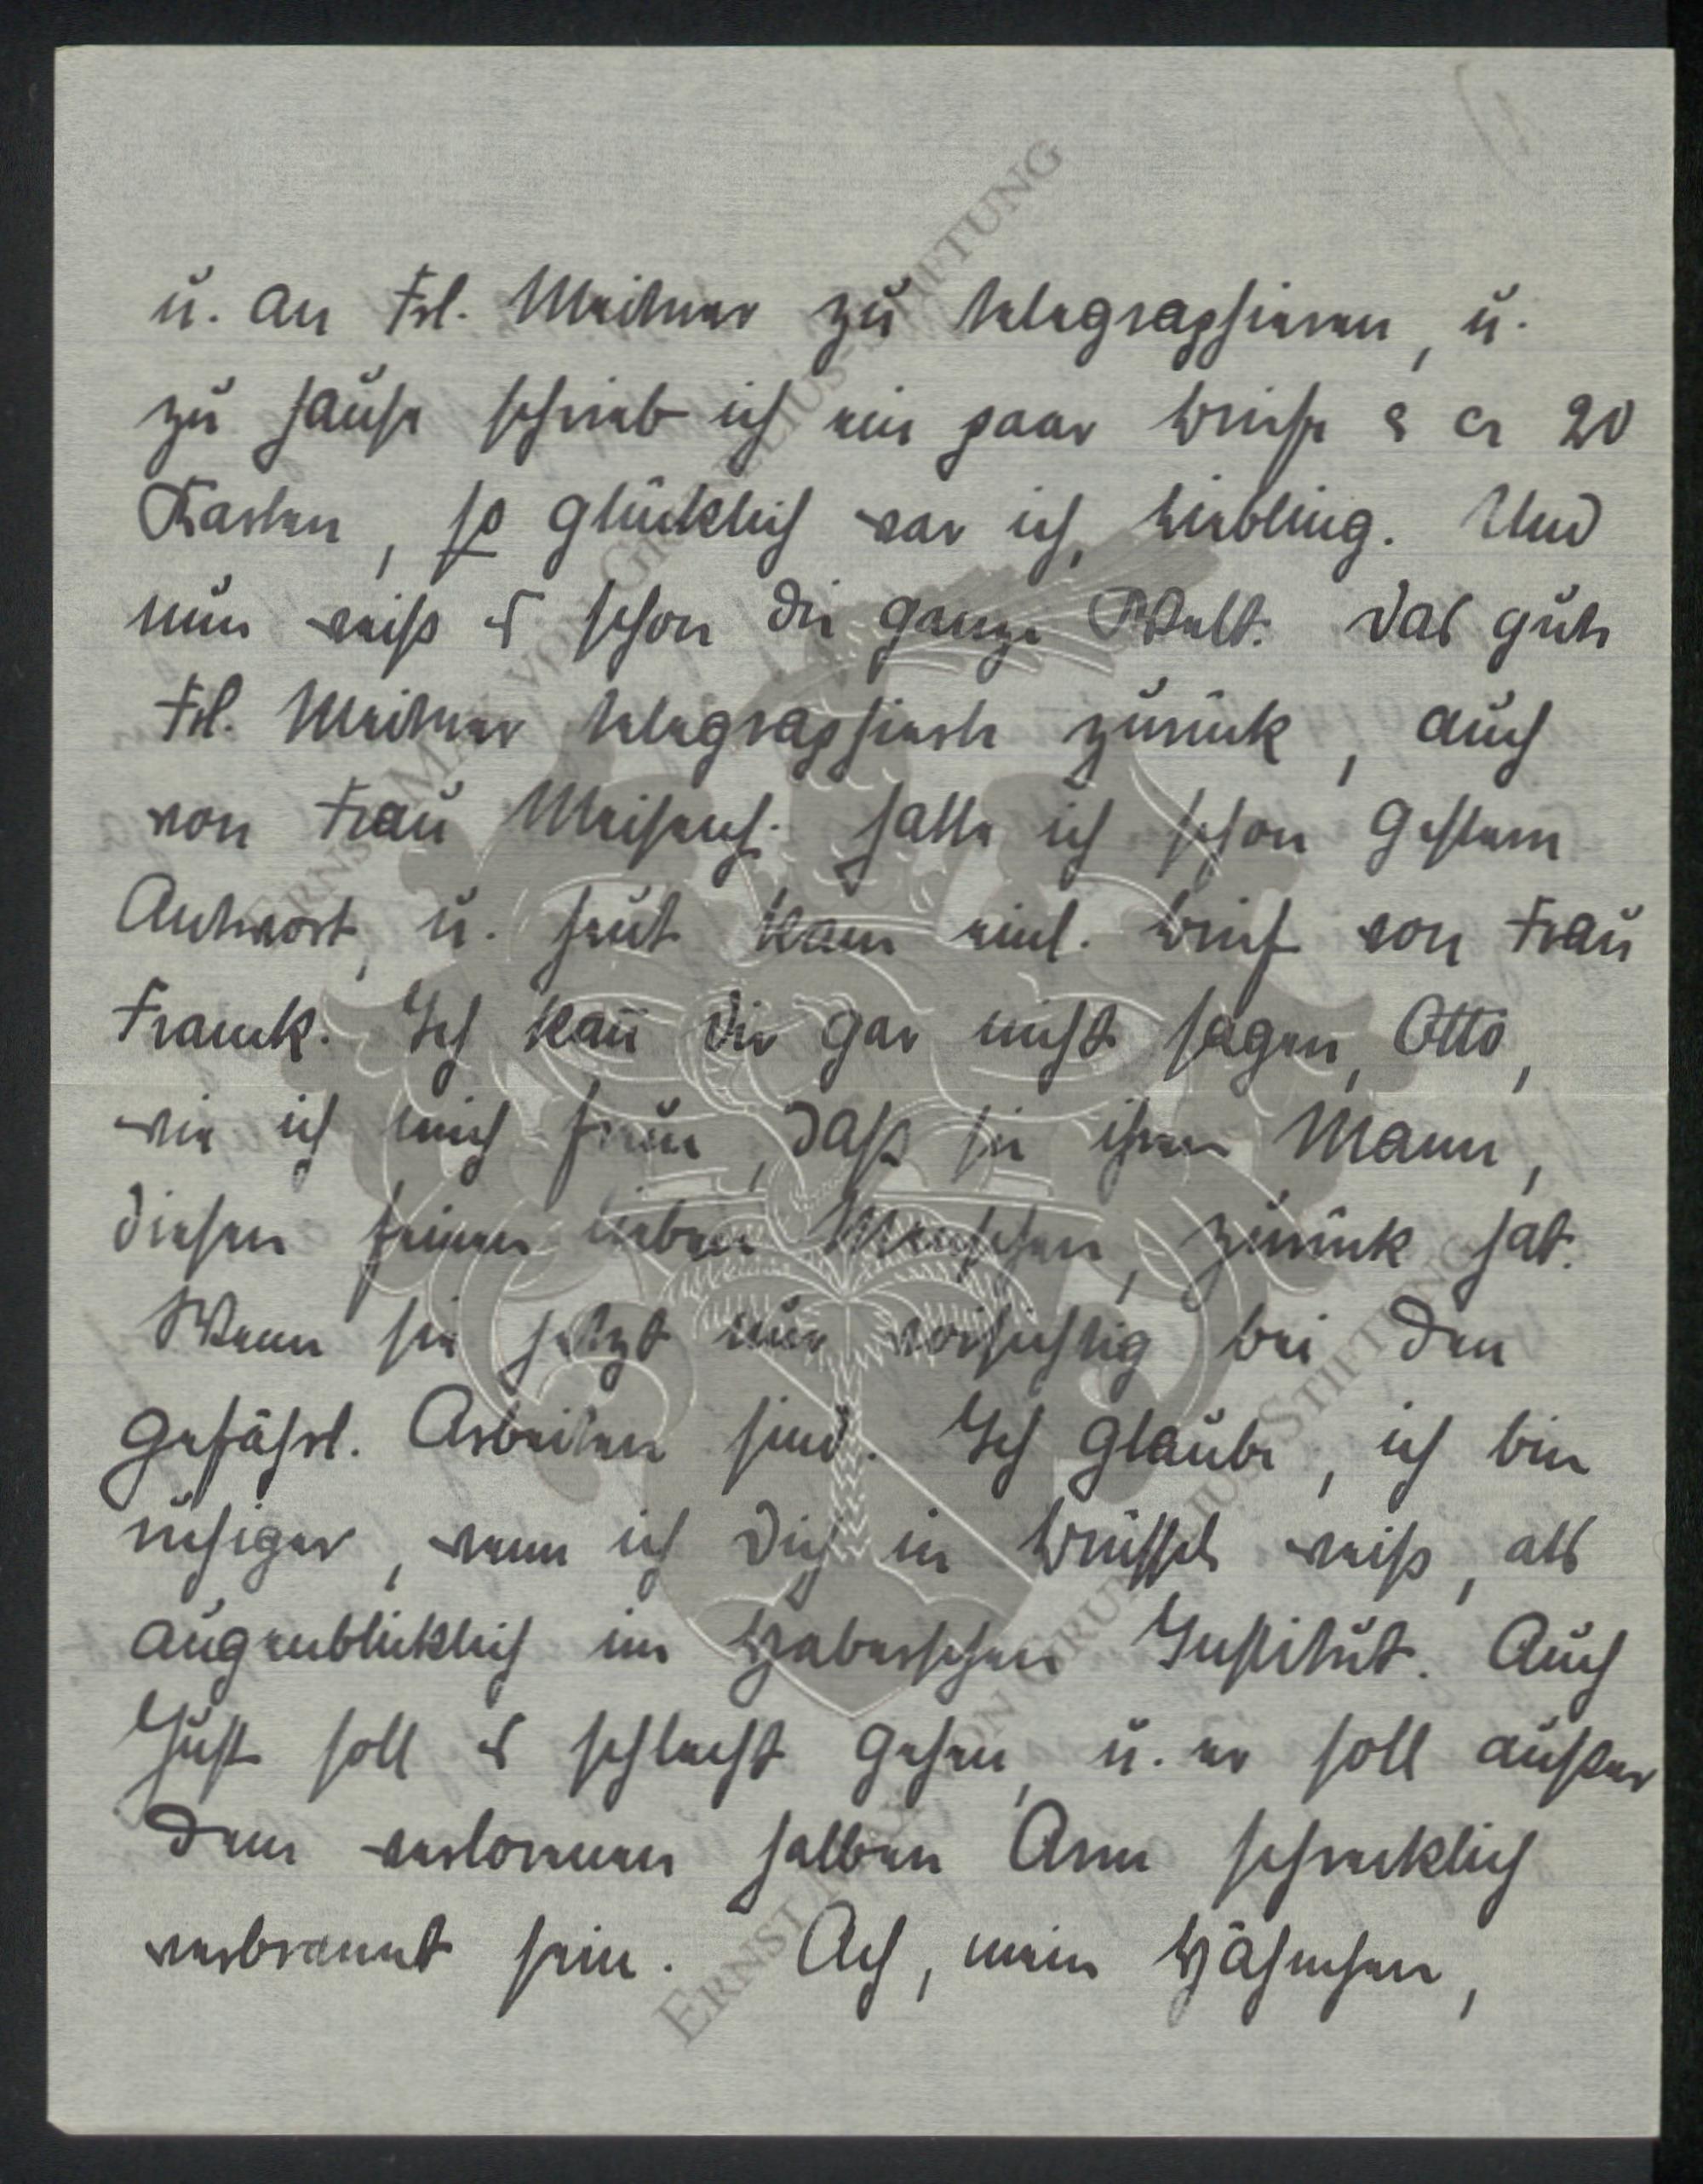 u. an Frl. Meitner zu telegraphieren, u.
zu Hause schrieb ich ein paar Briefe & ca 20
Karten, so glücklich war ich, Liebling. Und
nun weiß es schon die ganze Welt. Das gute
Frl. Meitner telegraphierte zurück, auch
von Frau Meisench. hatte ich schon gestern
Antwort, u. heut kam einl. Brief von Frau
Franck. Ich kan̄ dir gar nicht sagen, Otto,
wie ich mich freue, daß sie ihren Mann,
diesen feinen lieben Menschen, zurück hat.
Wenn sie jetzt nur vorsichtig bei den
gefährl. Arbeiten sind. Ich glaube, ich bin
ruhiger, wenn ich Dich in Brüssel weiß, als
augenblicklich im Haberschen Institut. Auch
Just soll es schlecht gehen, u. er soll außer
dem verlorenen halben Arm schrecklich
verbrannt sein. Ach, mein Hähnchen,
ERNST MAX VON GRUNELIUS-STIFTUNG
ERNST MAX VON GRUNELIUS-STIFTUNG